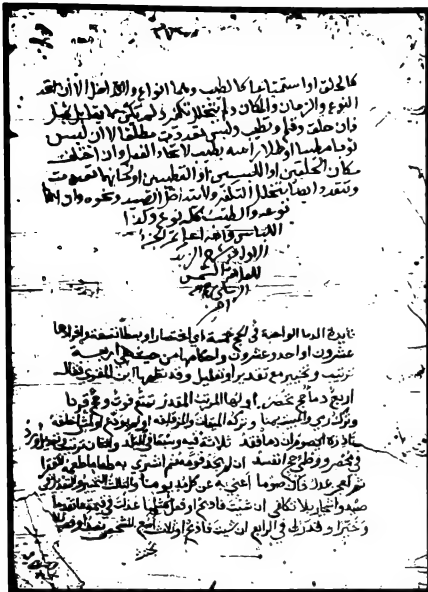 كالحلق او استمتاعا كالطيب وهما انواع ولا تداخل الا ان اتحد
النوع والزمان والمكان ولم يتخلل تكفير ولم يكن مما يقابل بمثل
فان حلق وقلم وتطيب ولبس تعددت مطلقا الا ان لبس
ثوبا مطيبا او طلا راسه بطيب لاتحاد الفعل وان اختلف
مكان الحلقين او اللبسين او التطيبين او زمانهما تعددت
وتتعدد ايضا بتخلل التكفير ولا تتداخل الصيد ونحوه وان اتحد
نوعه والطيب كله نوع وكذا
اللباس والله اعلم
فائدة الدما الواجبة في الحج
عشرون او احد وعشرون واحكامها من حيث هي اربعة
ترتيب وتخيير مع تقدير او تعديل وقد نظمها ابن المقري فقال
اربع دما حج تحصر اولها المرتب المقدر تمتع فوت وحج قرنا
وترك رمي والمبيت بمنى وتركه الميقات والمزدلفه او لم يودع او كمشي اخلفه
ناذره يصوم ان دما فقد ثلاثة فيه وسبعا في البلد والثان ترتيب وتعديل ورد
في محصر ووطئ حج ان فسد ان لم يجد قومه ثم اشترى به طعاما طعمة للفقرا
ثم لعجز عدل ذاك صوما اعني به عن كل مد يوما والثالث التخيير والتعديل في
صيد واشجار بلا تكلف ان شئت فاذبح او فعدل مثلما عدلت في قيمة ما تقدما
وخيرا وقدرا في الرابع ان شئت فاذبح او